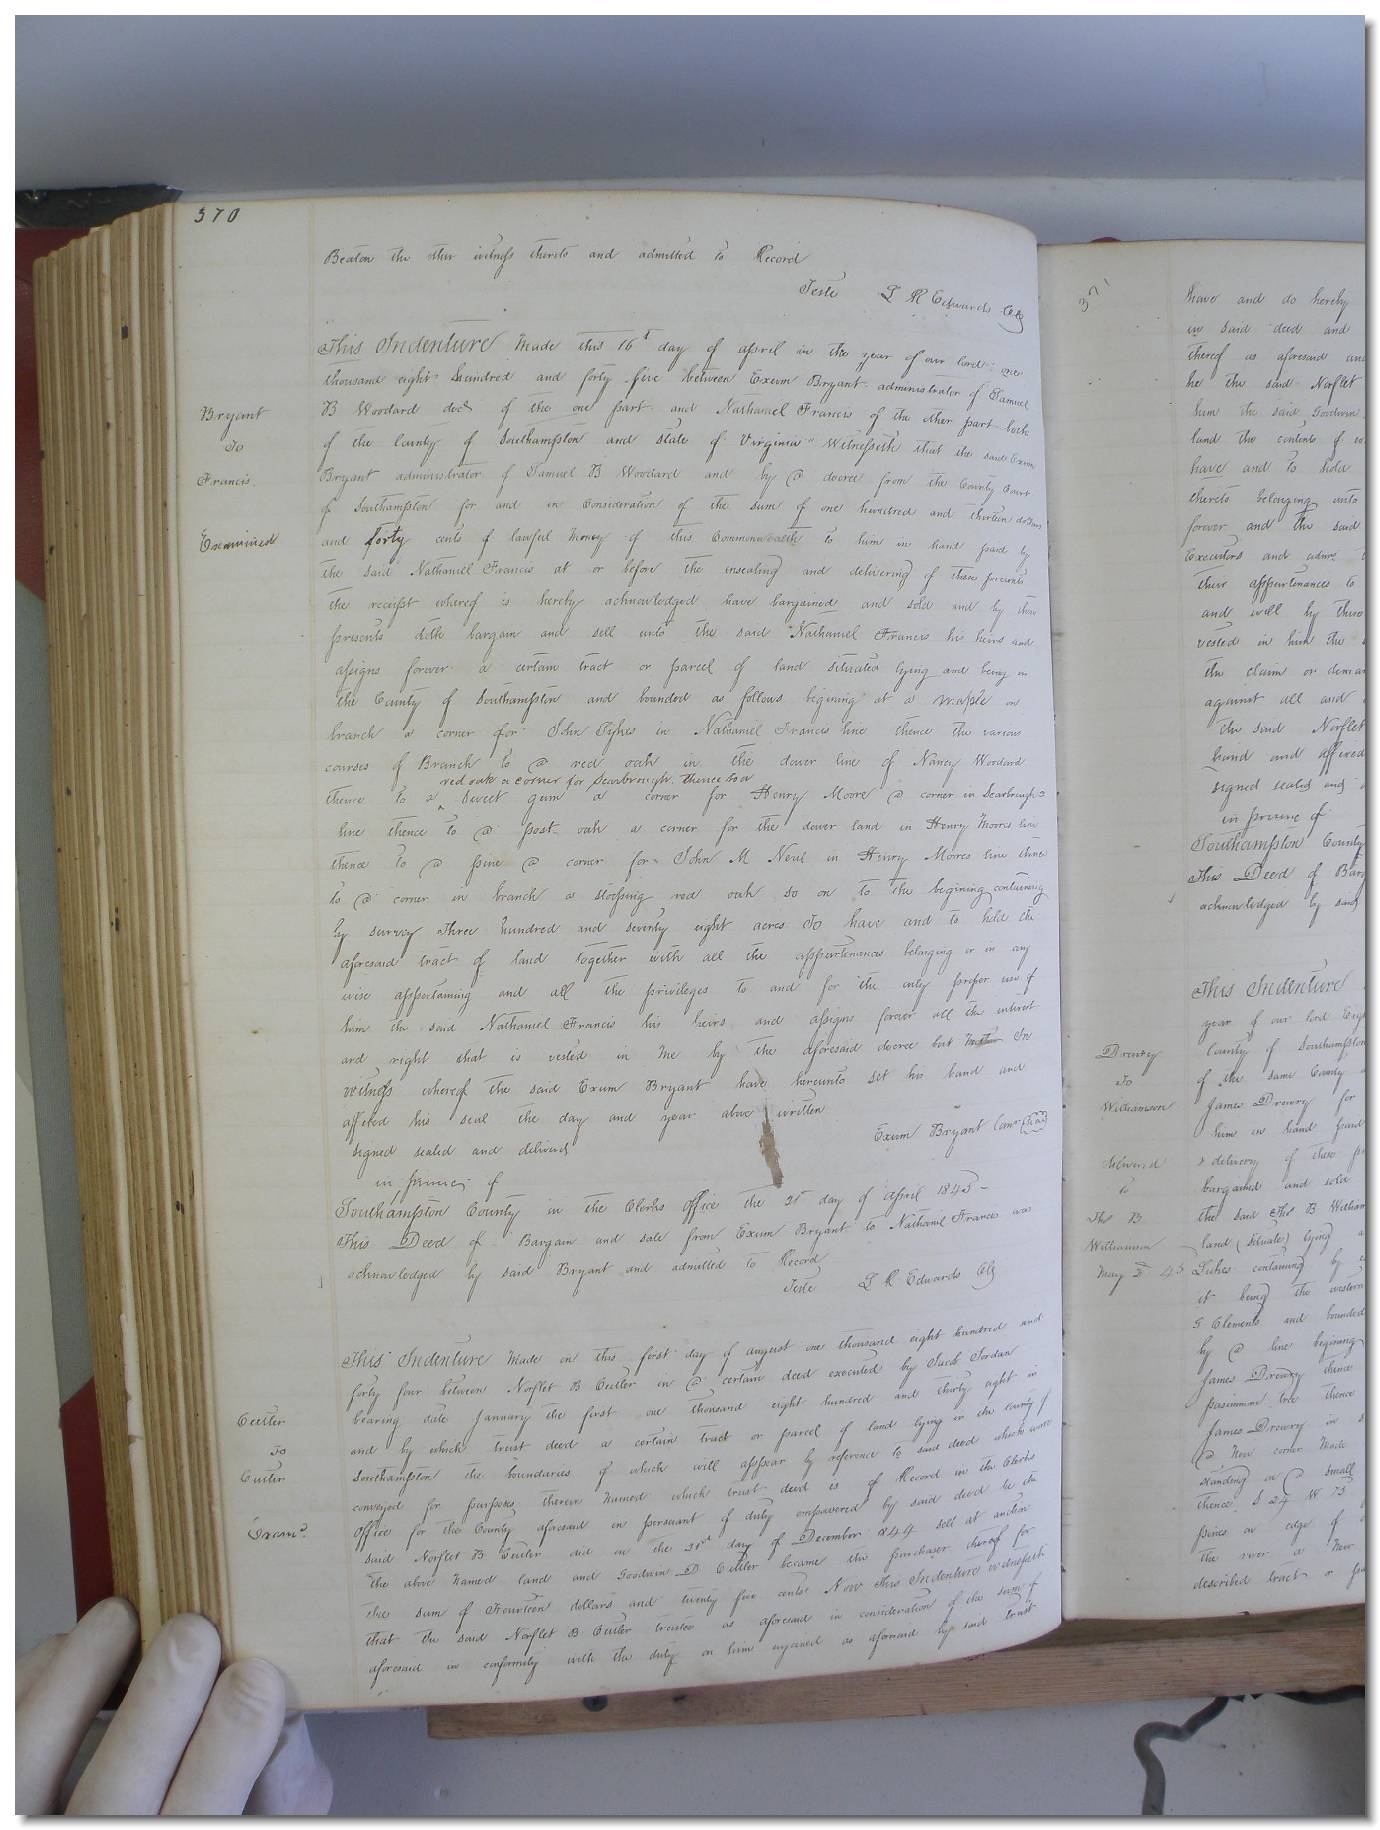 370
Beaton the other witness thereto and admitted to Record
Teste L R Edwards Clk
This Indenture Made this 16t day of april in the year of our lord one
thousand eight hundred and forty five between Exum Bryant administrator of Samuel
Bryant
To
Francis
Examined
B Woodard decd of the one part and Nathaniel Francis of the other part both
of the County of Southampton and state of Virginia Witnesseth that the said Exum
Bryant administrator of Samuel B Woodard and by @ decree from the County Court
of Southampton for and in Consideration of the sum of one hundred and thirteen dollars
and forty cents of lawful Money of this Commonwealth to him in hand paid by
the said Nathaniel Francis at or before the insealing and delivering of these presents
the receipt whereof is hereby acknowledged have bargained and sold and by these
presents doth bargain and sell unto the said Nathaniel Francis his heirs and
assigns forever a certain tract or parcel of land situated lying and being in
the County of Southampton and bounded as follows begining at a maple on
branch a corner for John Sykes in Nathaniel Francis line thence the various
courses of Branch to @ red oak in the dower line of Nancy Woodard
red oak a corner for Scarbrough thence to a
thence to a sweet gum a corner for Henry Moore @ corner in Scarbroughs
line thence to @ post oak a corner for the dower land in Henry Moores line
thence to @ pine @ corner for John M Neul in Henry Moores line thence
to @ corner in branch a stooping red oak so on to the begining containing
by survey three hundred and seventy eight acres To have and to hold the
aforesaid tract of land together with all the appurtenances belonging or in any
wise appertaining and all the privileges to and for the only proper use of
him the said Nathaniel Francis his heirs and assigns forever all the interest
and right that is vested in me by the aforesaid decree but In
witness whereof the said Exum Bryant have hereunto set his hand and
affixed his seal the day and year above written
signed sealed and delivered Exum Bryant Com seal
in presence of
Southampton County in the Clerks office the 21st day of april 1845
This Deed of Bargain and sale from Exum Bryant to Nathaniel Francis was
acknowledged by said Bryant and admitted to Record
Teste L R Edwards Clk
This Indenture Made on this first day of august one thousand eight hundred and
forty four between Norflet B Cutler in @ certain deed executed by Jacob Jordan
Cutler
To
Cutler
Examd
bearing date January the first one thousand eight hundred and thirty eight in
and by which trust deed a certain tract or parcel of land lying in the county of
Southampton the boundaries of which will appear by reference to said deed which were
conveyed for purposes therein Named which trust deed is of Record in the Clerks
office for the County aforesaid in persuant of duty empowered by said deed he the
said Norflet B Cutler did on the 21st day of December 1844 sell at auction
the above Named land and Goodwin D Cutler became the purchaser thereof for
the sum of Fourteen dollars and twenty five cents Now This Indenture witnesseth
that the said Norflet B Cutler trustee as aforesaid in consideration of the sum of
aforesaid in conformity with the duty on him enjoined as aforesaid by said trust
371
have and do hereby
in said deed and
thereof as aforesaid
he the said Norflet
him the said Goodwin
land the contents of
have and to hold
thereto belonging unto
forever and the said
Executors and admr
their appurtenances to
and will by these
vested in him the
the claim or
against all and
the said Norflet
hand and affixed
signed sealed and
in presence of
Southampton County
This Deed of
acknowledged by said
This Indenture
year of our lord
Drewry
To
Williamson
County of Southampton
of the same County
James Drewry for
him in hand paid
to
Thos B
Williamson
May 45
& delivery of these
bargained and sold
the said Thos B
land (situate) lying
containing by
it being the western
G Clements and bounded
by @ line begining
James Drewry thence
persimmon tree thence
James Drewry in
@ New corner Made
standing on @ small
thence S 24 W 75
pines on edge of
the river a New
described tract or